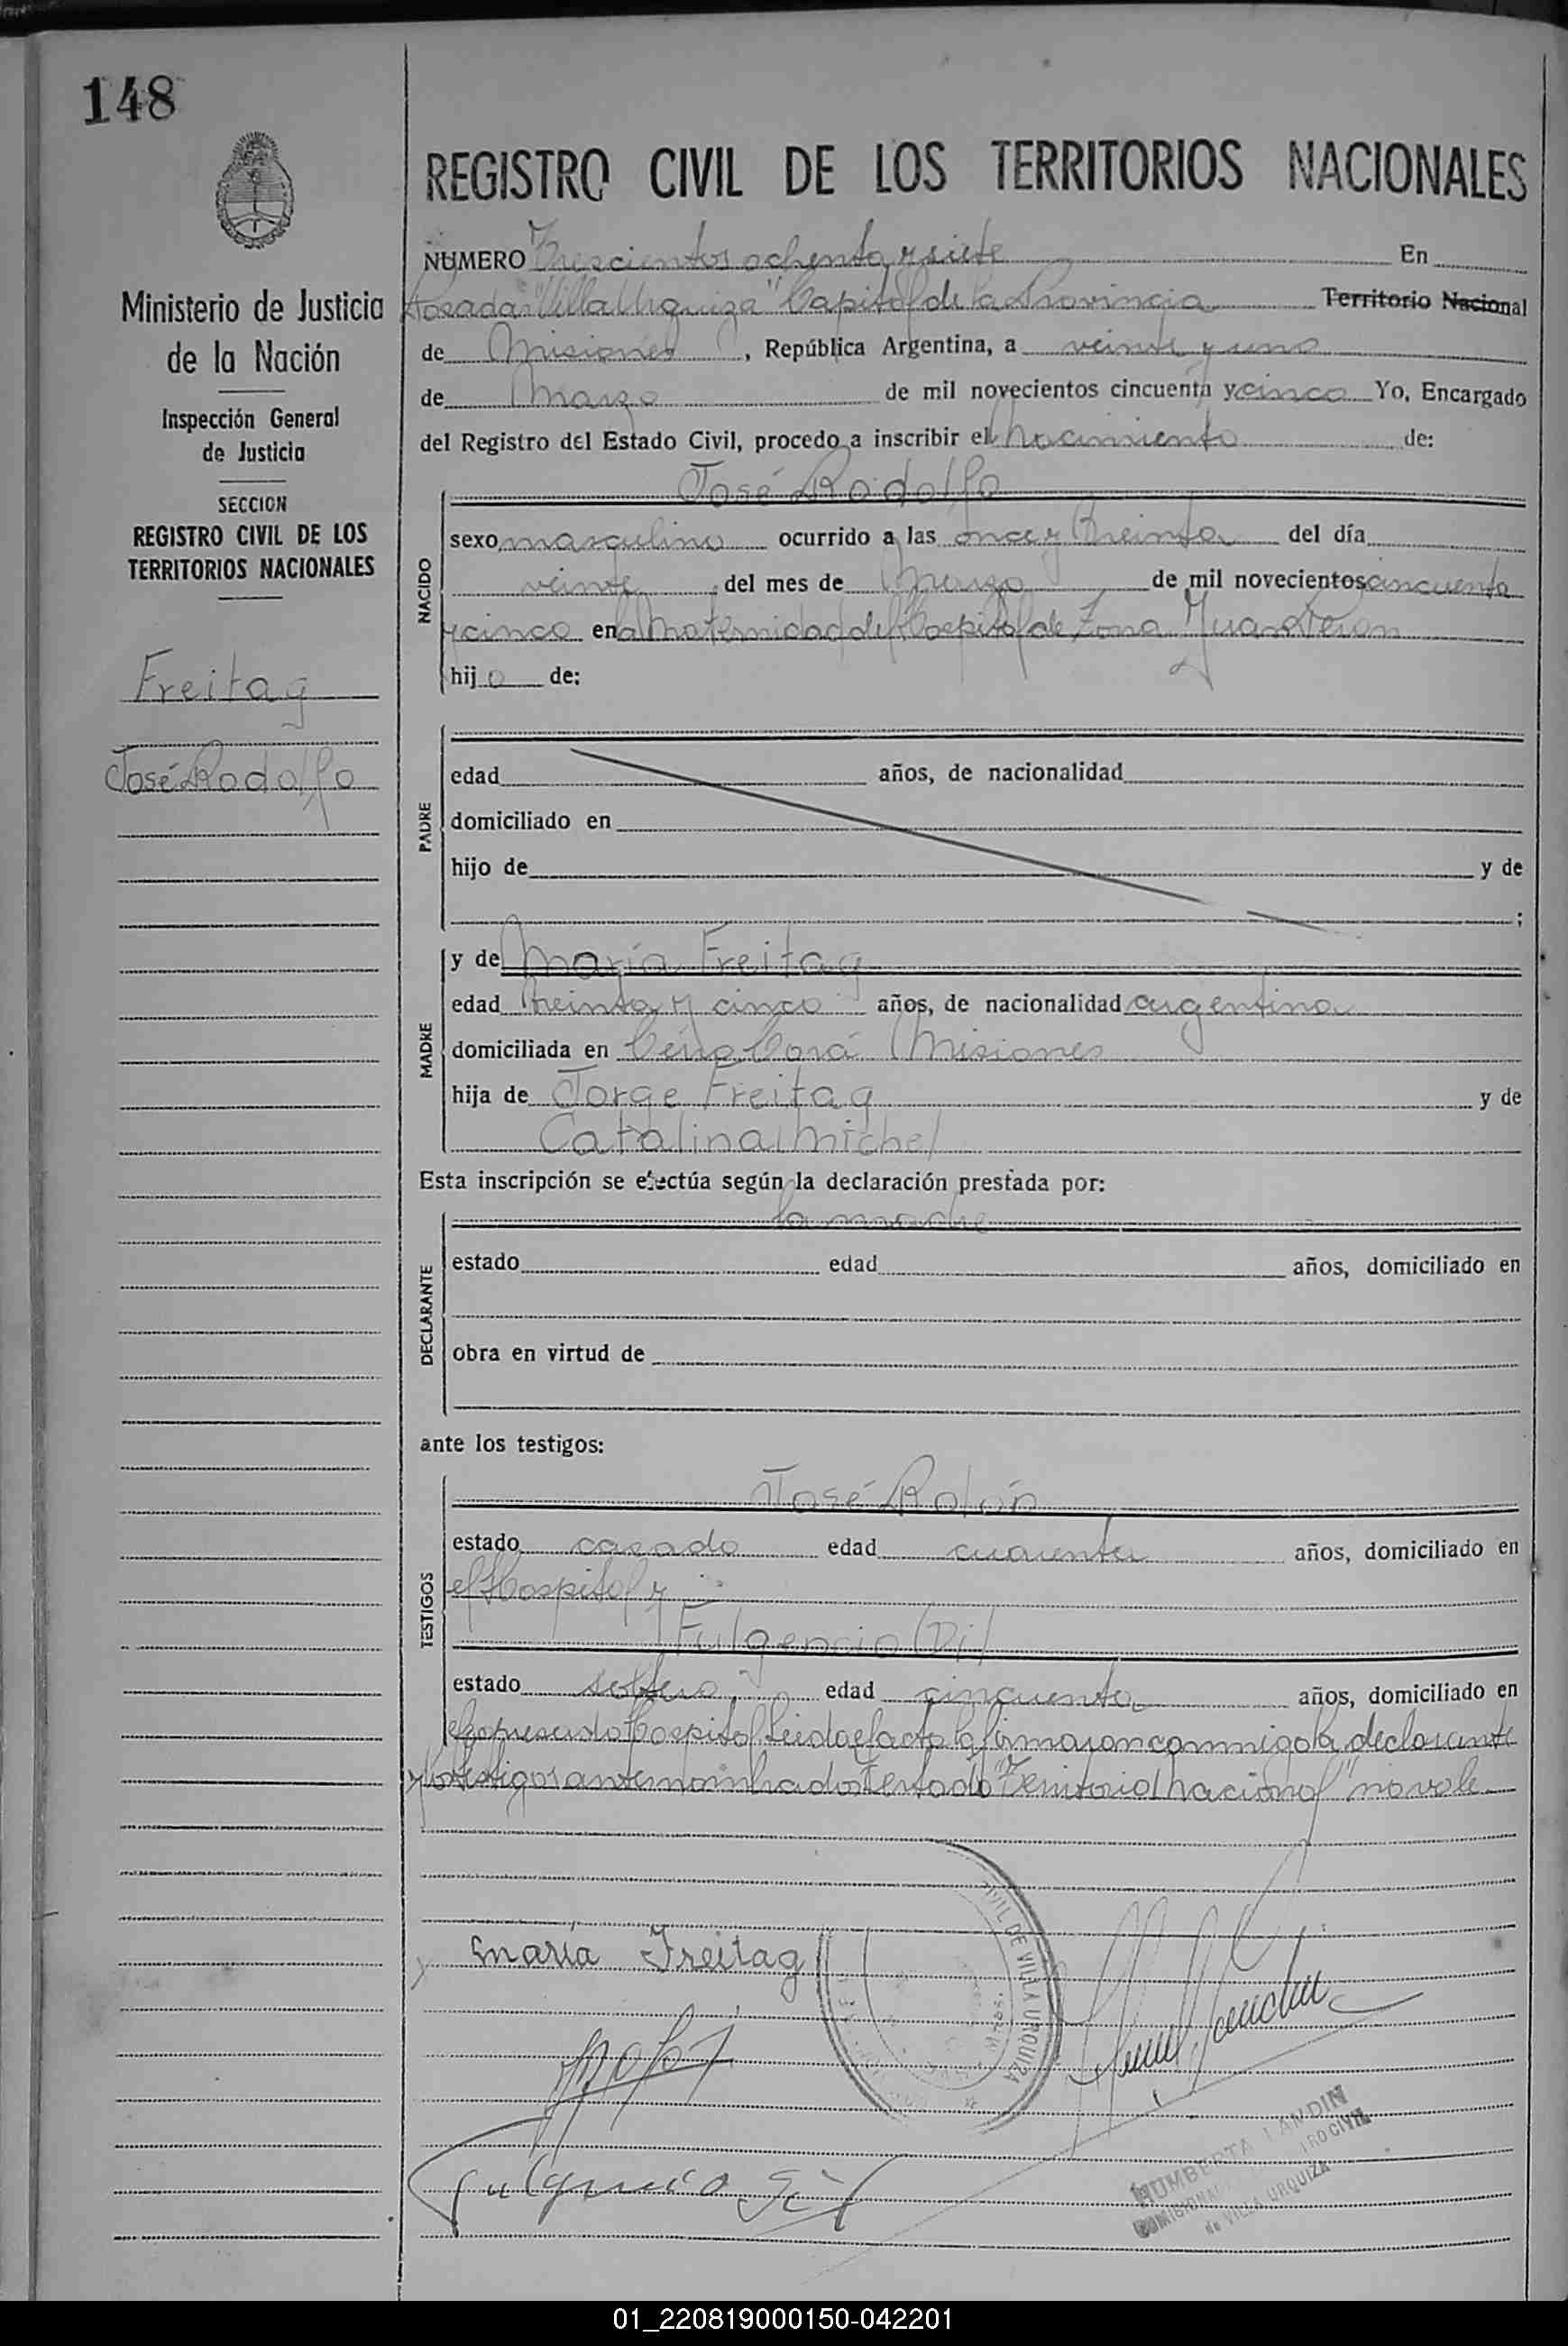 148
Ministerio de Justicia
de la Nación
Inspección General
de Justicia
SECCION
REGISTRO CIVIL DE LOS
TERRITORIOS NACIONALES
Freitag
José Rodolfo
REGISTRO CIVIL DE LOS TERRITORIOS NACIONALES
NUMERO Trescientos ochenta y siete En
Posadas "Villa Urquiza" Capital de la Provincia Territorio Nacional
de Misiones, República Argentina, a veinte y uno
de Marzo de mil novecientos cincuenta y cinco Yo, Encargado
del Registro del Estado Civil, procedo a inscribir el Nacimiento de:
José Rodolfo
NACIDO
sexo masculino ocurrido a las once y Treinta del día
veinte del mes de Marzo de mil novecientos cincuenta
y cinco en la Maternidad del Hospital de Zona Juan Perón
hijo de:
PADRE
edad años, de nacionalidad
domiciliado en
hijo de y de
;
MADRE
y de María Freitag
edad treinta y cinco años, de nacionalidad argentina
domiciliada en Cerro Corá Misiones
hija de Jorge Freitag y de
Catalina Michel
Esta inscripción se efectúa según la declaración prestada por:
la madre
DECLARANTE
estado edad años, domiciliado en
obra en virtud de
ante los testigos:
José Rolón
TESTIGOS
estado casado edad cuarenta años, domiciliado en
el Hospital y
Fulgencio Gil
estado soltero edad cincuenta años, domiciliado en
el expresado Hospital Leida el acta la firmaron conmigo la declarante
y los testigos antes nombrados Testado "Territorio Nacional" no vale
María Freitag
CIVIL DE VILLA URQUIZA
Fulgencio Gil
HUMBERTA LANDIN
de VILLA URQUIZA
01_220819000150-042201